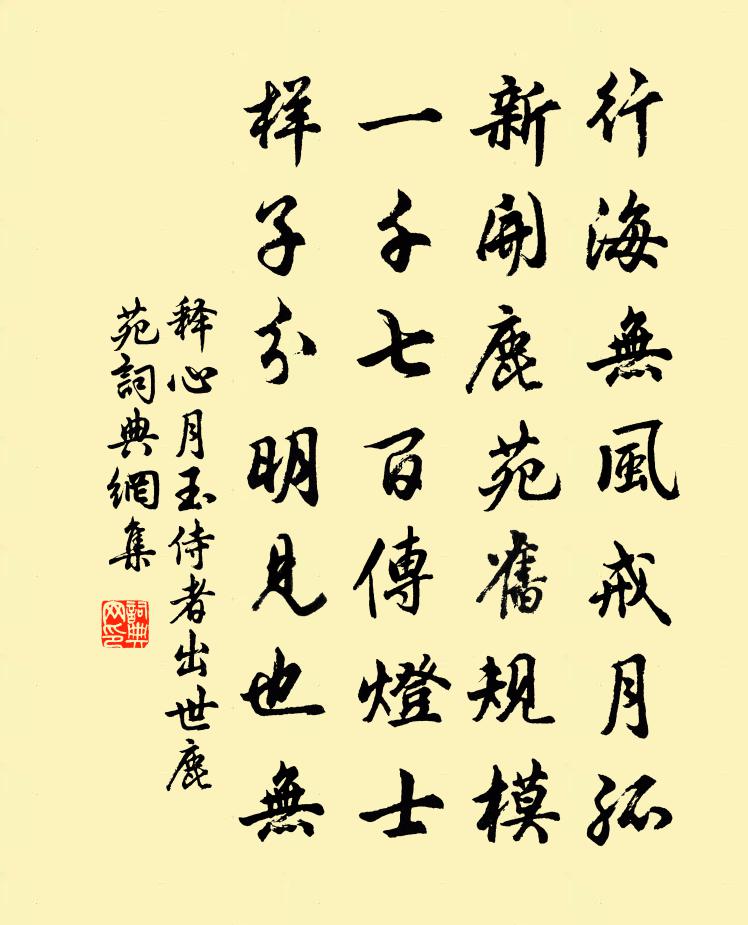 行海無風戒月孤
新開鹿苑舊規模
一千七百傳燈士
样子分明見也無
释心月玉侍者出世鹿
苑詞典網集
詞典网印